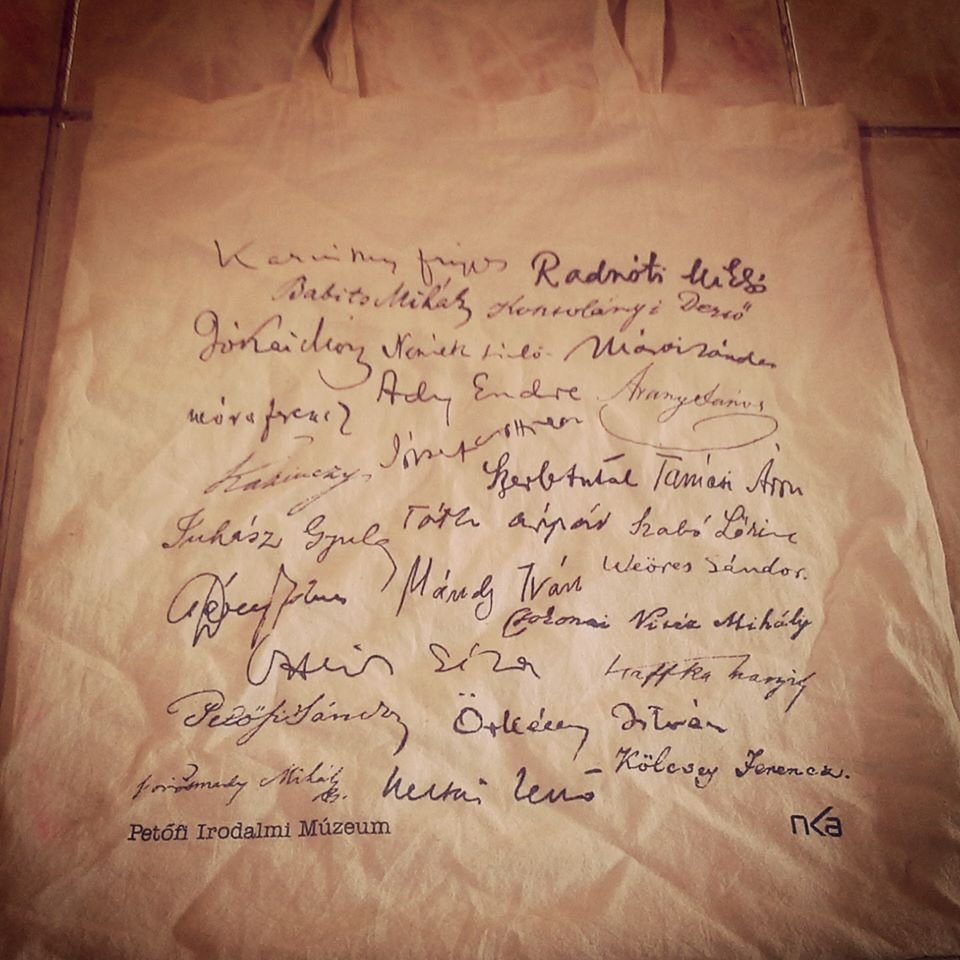 Karinthy Frigyes Radnóti Miklós
Babits Mihály Kosztolányi Dezső
Jókai Mór Németh László Márai Sándor
Móra Ferencz Ady Endre Arany János
Kazinczy József Attila
Szerb Antal Tamási Áron
Juhász Gyula Tóth Árpád Szabó Lőrinc
Mándy Iván Weöres Sándor.
Csokonai Vitéz Mihály
Géza
Petőfi Sándor Örkény István
Vörösmarty Mihály Jenő Kölcsey Ferencz.
Petőfi Irodalmi Múzeum nka